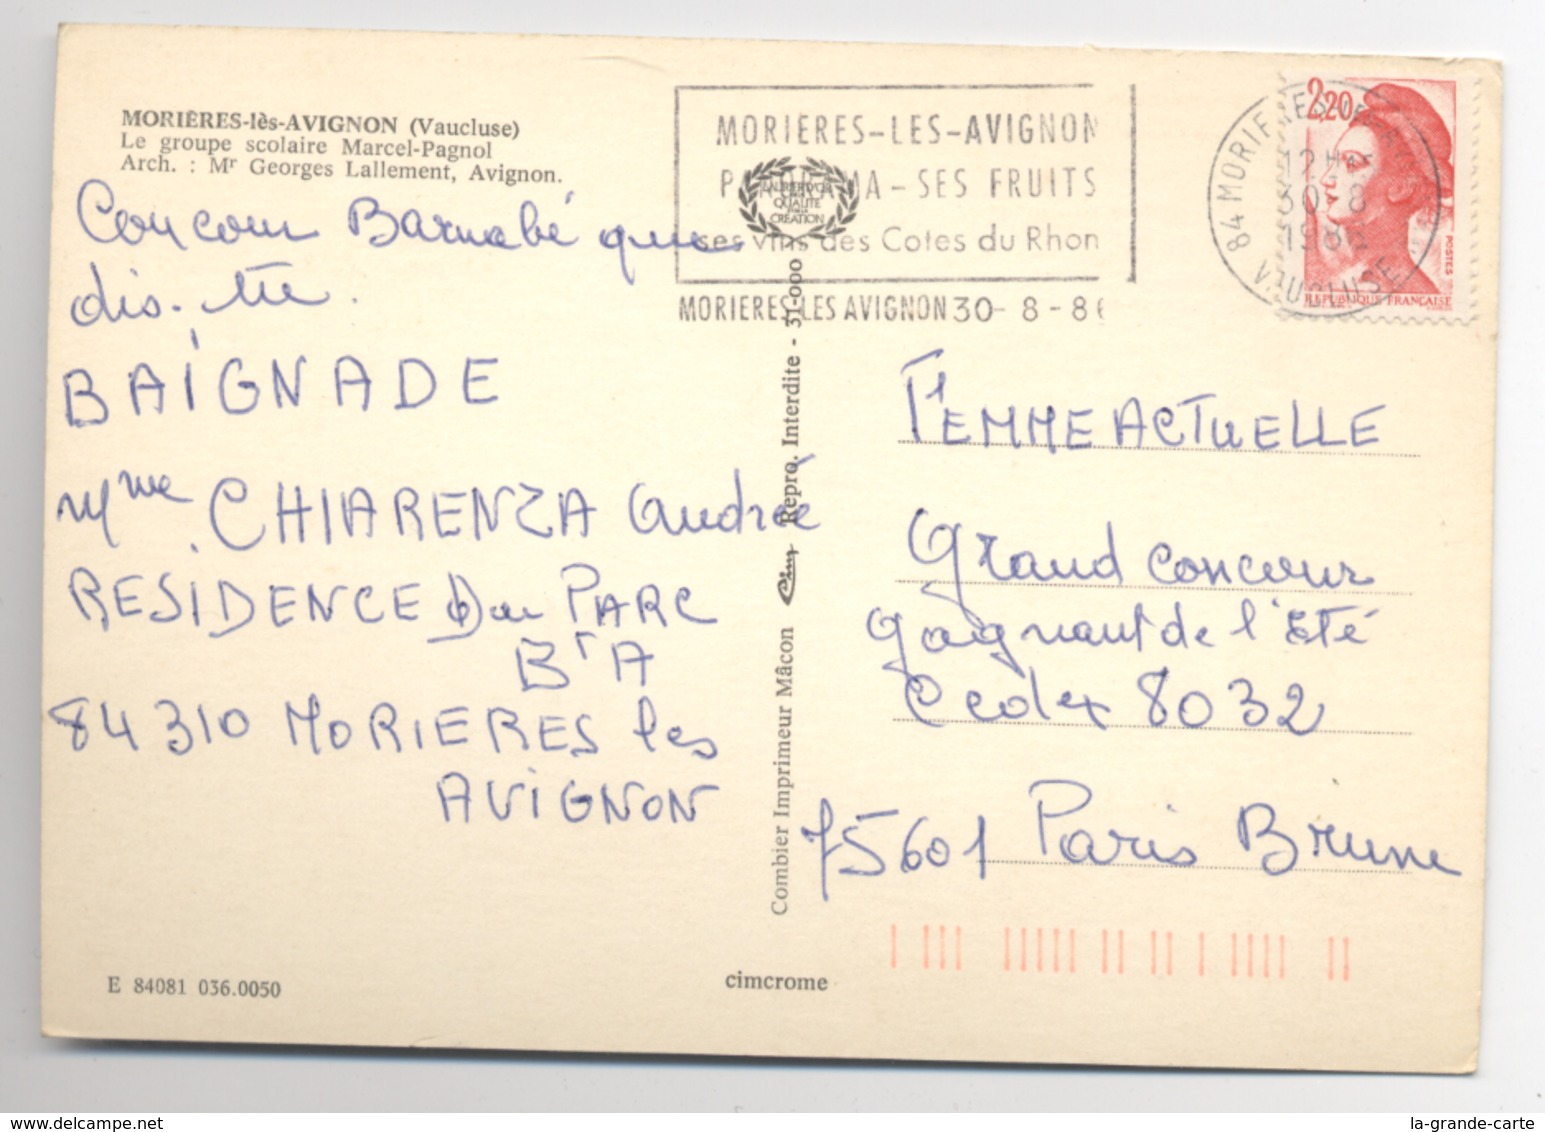 MORIÈRES-lès-AVIGNON (Vaucluse)
Le groupe scolaire Marcel-Pagnol
Arch. : Mr Georges Lallement, Avignon.
Concour Barnabé que
dis-tu.
BAIGNADE
Mme CHIARENZA Andrée
RESIDENCE Du PARC
BT A
84310 MORIERES les
AVIGNON
E 84081 036.0050
MORIERES-LES-AVIGNON
PANORAMA - SES FRUITS
ses vins des Cotes du Rhon
MORIERES LES AVIGNON 30-8-86
LAURIER D'OR
QUALITÉ
CRÉATION
Combier Imprimeur Mâcon Cim Repro. Interdite - 31-000
cimcrome
2,20
POSTES
REPUBLIQUE FRANÇAISE
84 MORIERES-LES-A
12H
30-8
1986
VAUCLUSE
FEMME ACTUELLE
Grand concour
gagnant de l'Eté
Cedex 8032
75601 Paris Brune
la-grande-carte